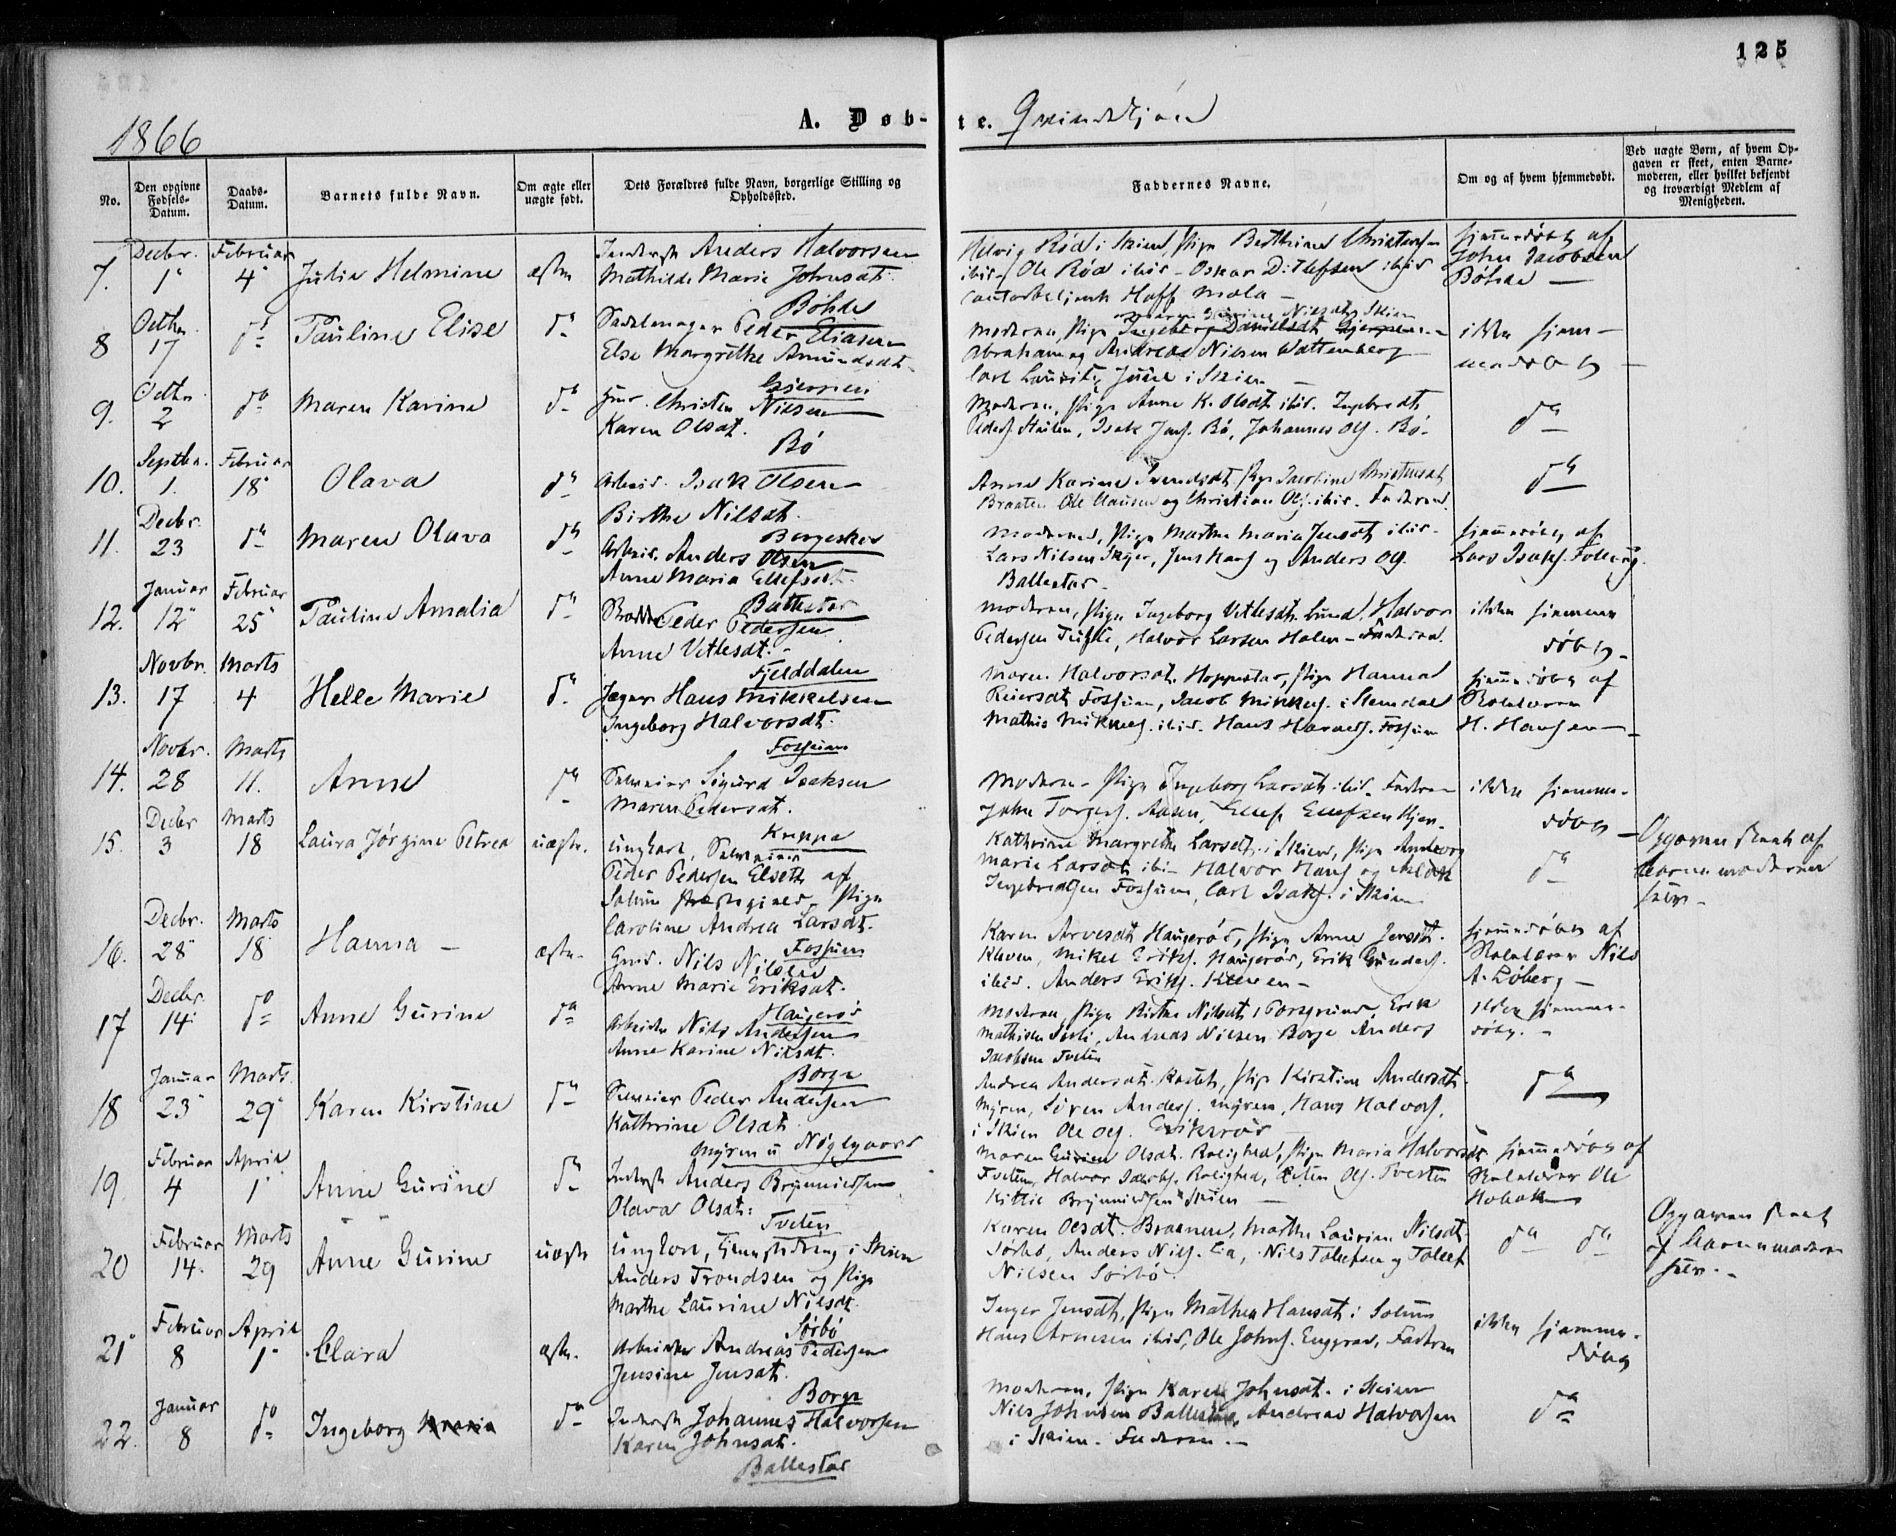 125
1866
A. Døb-te. Qvindekjøn
No.
Den opgivne Fødsels-Datum.
Daabs-Datum.
Barnets fulde Navn.
Om ægte eller uægte født.
Dets Forældres fulde Navn, borgerlige Stilling og Opholdssted.
Faddernes Navne.
Om og af hvem hjemmedøbt.
Ved uægte Børn, af hvem Opgaven er skeet, enten Barnemoderen, eller hvilket bekjendt og troværdigt Medlem af Menigheden.
7. Decbr. 1 Februar 4 Julia Helmine ægte
Inderst Anders Halvorsen
Mathilde Marie Johnsdt.
Böhle
Helvig Röd i Skien, Pige Berthine Christensen
ibid- Ole Röd ibid - Oskar Ditlefsen ibid
Hoff Mæla -
hjemmedøbt af
John Jacobsen
Böhle -
8 Octbr. 17 do Pauline Elise do
Sadelmager Peder Eliasen
Else Margrethe Amundsdt.
Gjerpen
Moderen, Pige
Abraham og Andreas Nilsen Wattenberg
Carl Lauritz Juul i Skien -
ikke hjem-
medøbt
9. Octbr. 2 do Maren Karine do
Gmd. Christen Nilsen
Karen Olsdt.
Bö
Moderen, Pige Anne K. Olsdt. ibid. Ingebredt
Peders. Isak Jens. Bö, Johannes Ols. Bö-
do
10. Septbr. 1. Februar 18 Olava do
Arbeid. Isak Olsen
Birthe Nilsdt.
Borgeskov
Anne Karine Svendsdt. Pige Jacobine Christensdt.
Braaten Ole Clausen og Christian Ols. ibid. Faderen
do
11. Decbr. 23 do Maren Olava do
Arbeid. Anders Olsen
Anne Maria Ellefsdt.
Ballestad
Moderen, Pige Marthe Maria Jensdt. ibid -
Lars Nilsen Jens Hans. og Anders Ols.
Ballestad -
hjemmedøbt af
Lars Isaks.
12. Januar 12 Februar 25 Pauline Amalia do
Peder Pedersen
Anne Vetlesdt. -
Fjelddalen
Moderen, Pige Ingeborg Vetlesdt. Lund, Halvor
Pedersen Halvor Larsen Holm - Faderen
ikke hjemme
døbt -
13. Novbr. 17 Marts 4 Helle Marie do
Jæger Hans Mikkelsen
Ingeborg Halvorsdt.
Fossum
Maren Halvorsdt. Hoppestad, Pige Hanna
Reiersdt. Fossum, Jacob Mikkels. i Slemdal
Mathis Mikkels. ibid. Hans Fossum
hjemmedøbt af
Skolelærer
H. Hansen -
14. Novbr. 28 Marts 11. Anne do
Selveier Sigurd Isaksen
Maren Pedersdt.
Kreppa
Moderen - Pige Ingeborg Larsdt. ibid. Faderen
John Torgers. Aasen, Ellef Ellefsen
ikke hjemme-
døbt -
15. Decbr. 3 Marts 18 Laura Jørgine Petrea uægte.
ungkarl, Selveier
Peder Pedersen Elseth af
Solum Præstegjeld - Pige
Caroline Andrea Larsdt.
Fossum
Kathrine Margrethe Larsdt. i Skien, Pige
Marie Larsdt. ibid - Halvor Hans. og
Ingebredtsen Fossum, Carl Isaks. i Skien
do
Opgaven skeet af
Barnemoderen
selv -
16. Decbr. 28 Marts 18 Hanna - ægte.
Gmd. Nils Nilsen
Anne Marie Eriksdt.
Haugerød
Karen Arvesdt. Haugerød, Pige Anne Jensdt.
Kleven, Mikel Eriks. Haugerød, Erik Gunders.
ibid. Anders Eriks. Kleven -
hjemmedøbt af
Skolelærer Nils
A. Löberg -
17 Decbr. 14 do Anne Gurine do
Arbeider Nils Andersen
Anne Karine Nilsdt.
Borge
Moderen, Pige Birthe Nilsdt. i Porsgrund, Erik
Mathisen Andreas Nilsen Borge Anders
Jacobsen Tveten
ikke hjemme-
døbt. -
18 Januar 23 Marts 29 Karen Kirstine do
Selveier Peder Andersen
Kathrine Olsdt.
Myren u. Nøglegaard
Andrea Andersdt. Pige Kirstine Andersdt.
Myren, Sören Anders. Myren, Hans Halvors.
i Skien Ole Ols.
do
19. Februar 4 April 1 Anne Gurine do
Inderst Anders Brynnildsen
Olava Olsdt.
Tveten
Maren Gurine Olsdt. Rolighed, Pige Maria Halvorsdt.
Tveten, Halvor Jacobs. Rolighed, Ols. Tveten
Kittil Brynnildsen Skien -
hjemmedøbt af
Skolelærer Ole
Hobæk
20 Februar 14. Marts 29 Anne Gurine uægte
ungkarl, i Skien
Anders Trondsen og Pige
Marthe Laurine Nilsdt.
Sörbö
Karen Olsdt. Marthe Laurine Nilsdt.
Sörbö, Anders Nils. Lia, Nils Tollefsen og Tollef
Nilsen Sörbö.
do do
Opgaven skeet
af Barnemoderen
selv. -
21 Februar 8 April 1 Clara ægte.
Arbeider Andreas Pedersen
Jensine Jensdt.
Borge
Inger Jensdt, Pige Mathea Hansdt. i Solum
Hans Arnesen ibid, Ole Johns. Enggrav, Faderen
ikke hjemme-
døbt
22. Januar 8 do Ingeborg Maria do
Inderst Johannes Halvorsen
Karen Johnsdt.
Ballestad
Moderen, Pige Karen Johnsdt. i Skien
Nils Johnsen Ballestad, Andreas Halvorsen
i Skien - Faderen -
do